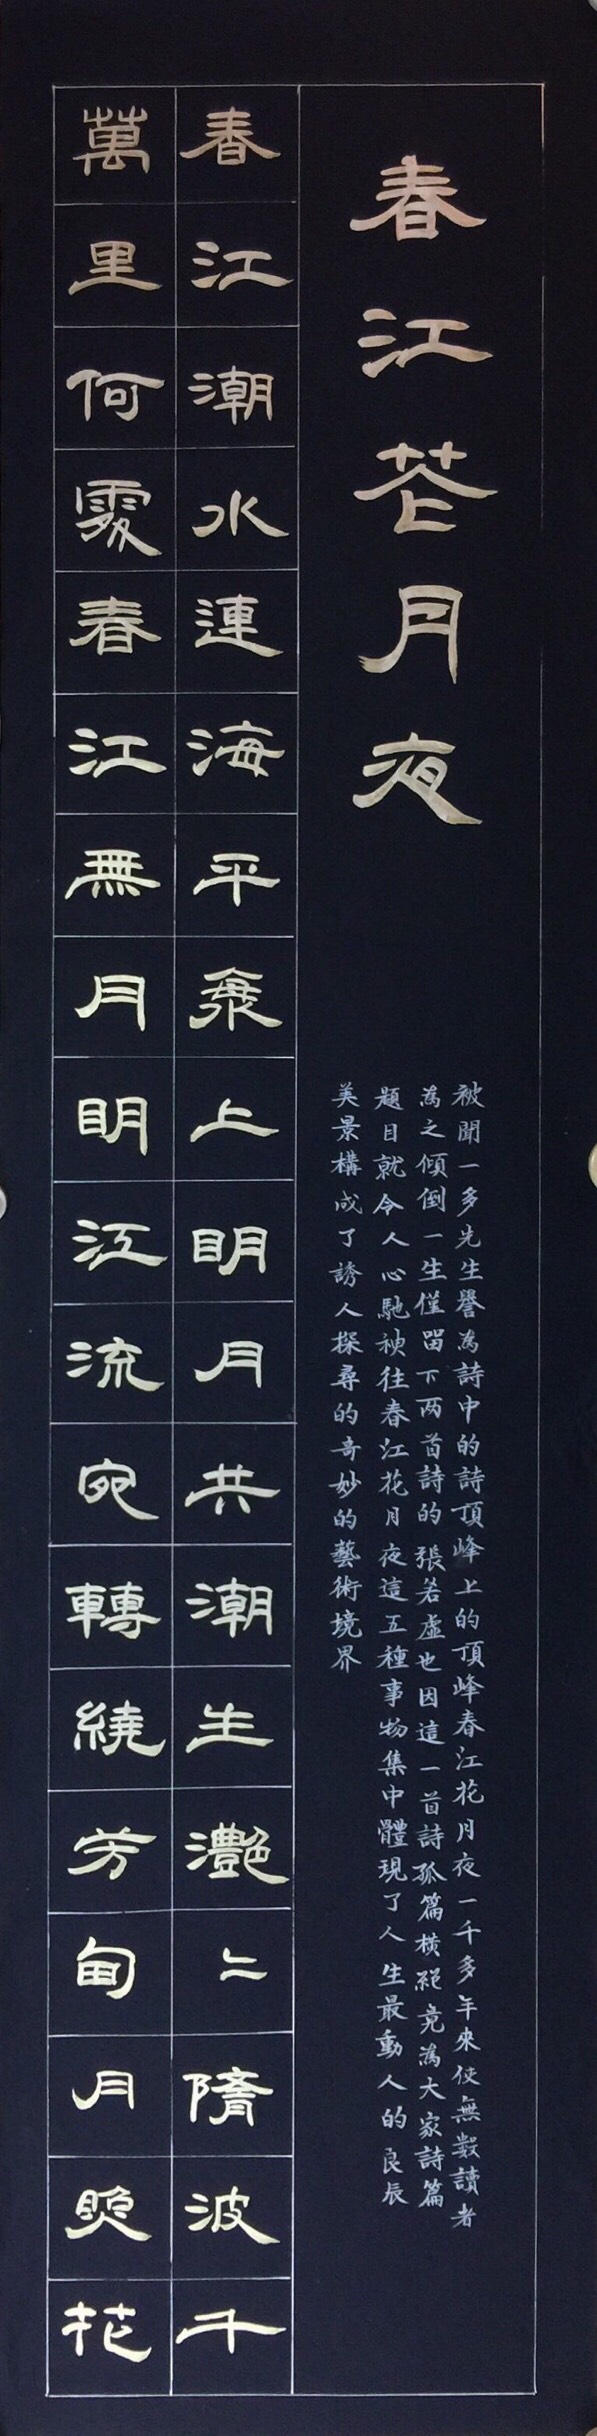 春江花月夜
被聞一多先生譽為詩中的詩頂峰上的頂峰春江花月夜一千多年來使無數讀者
為之傾倒一生僅留下两首詩的張若虛也因這一首詩孤篇橫絕竟為大家詩篇
題目就令人心馳神往春江花月夜這五種事物集中體現了人生最動人的良辰
美景構成了誘人探尋的奇妙的藝術境界
春江潮水連海平海上明月共潮生灧〻隨波千
萬里何處春江無月明江流宛轉繞芳甸月照花